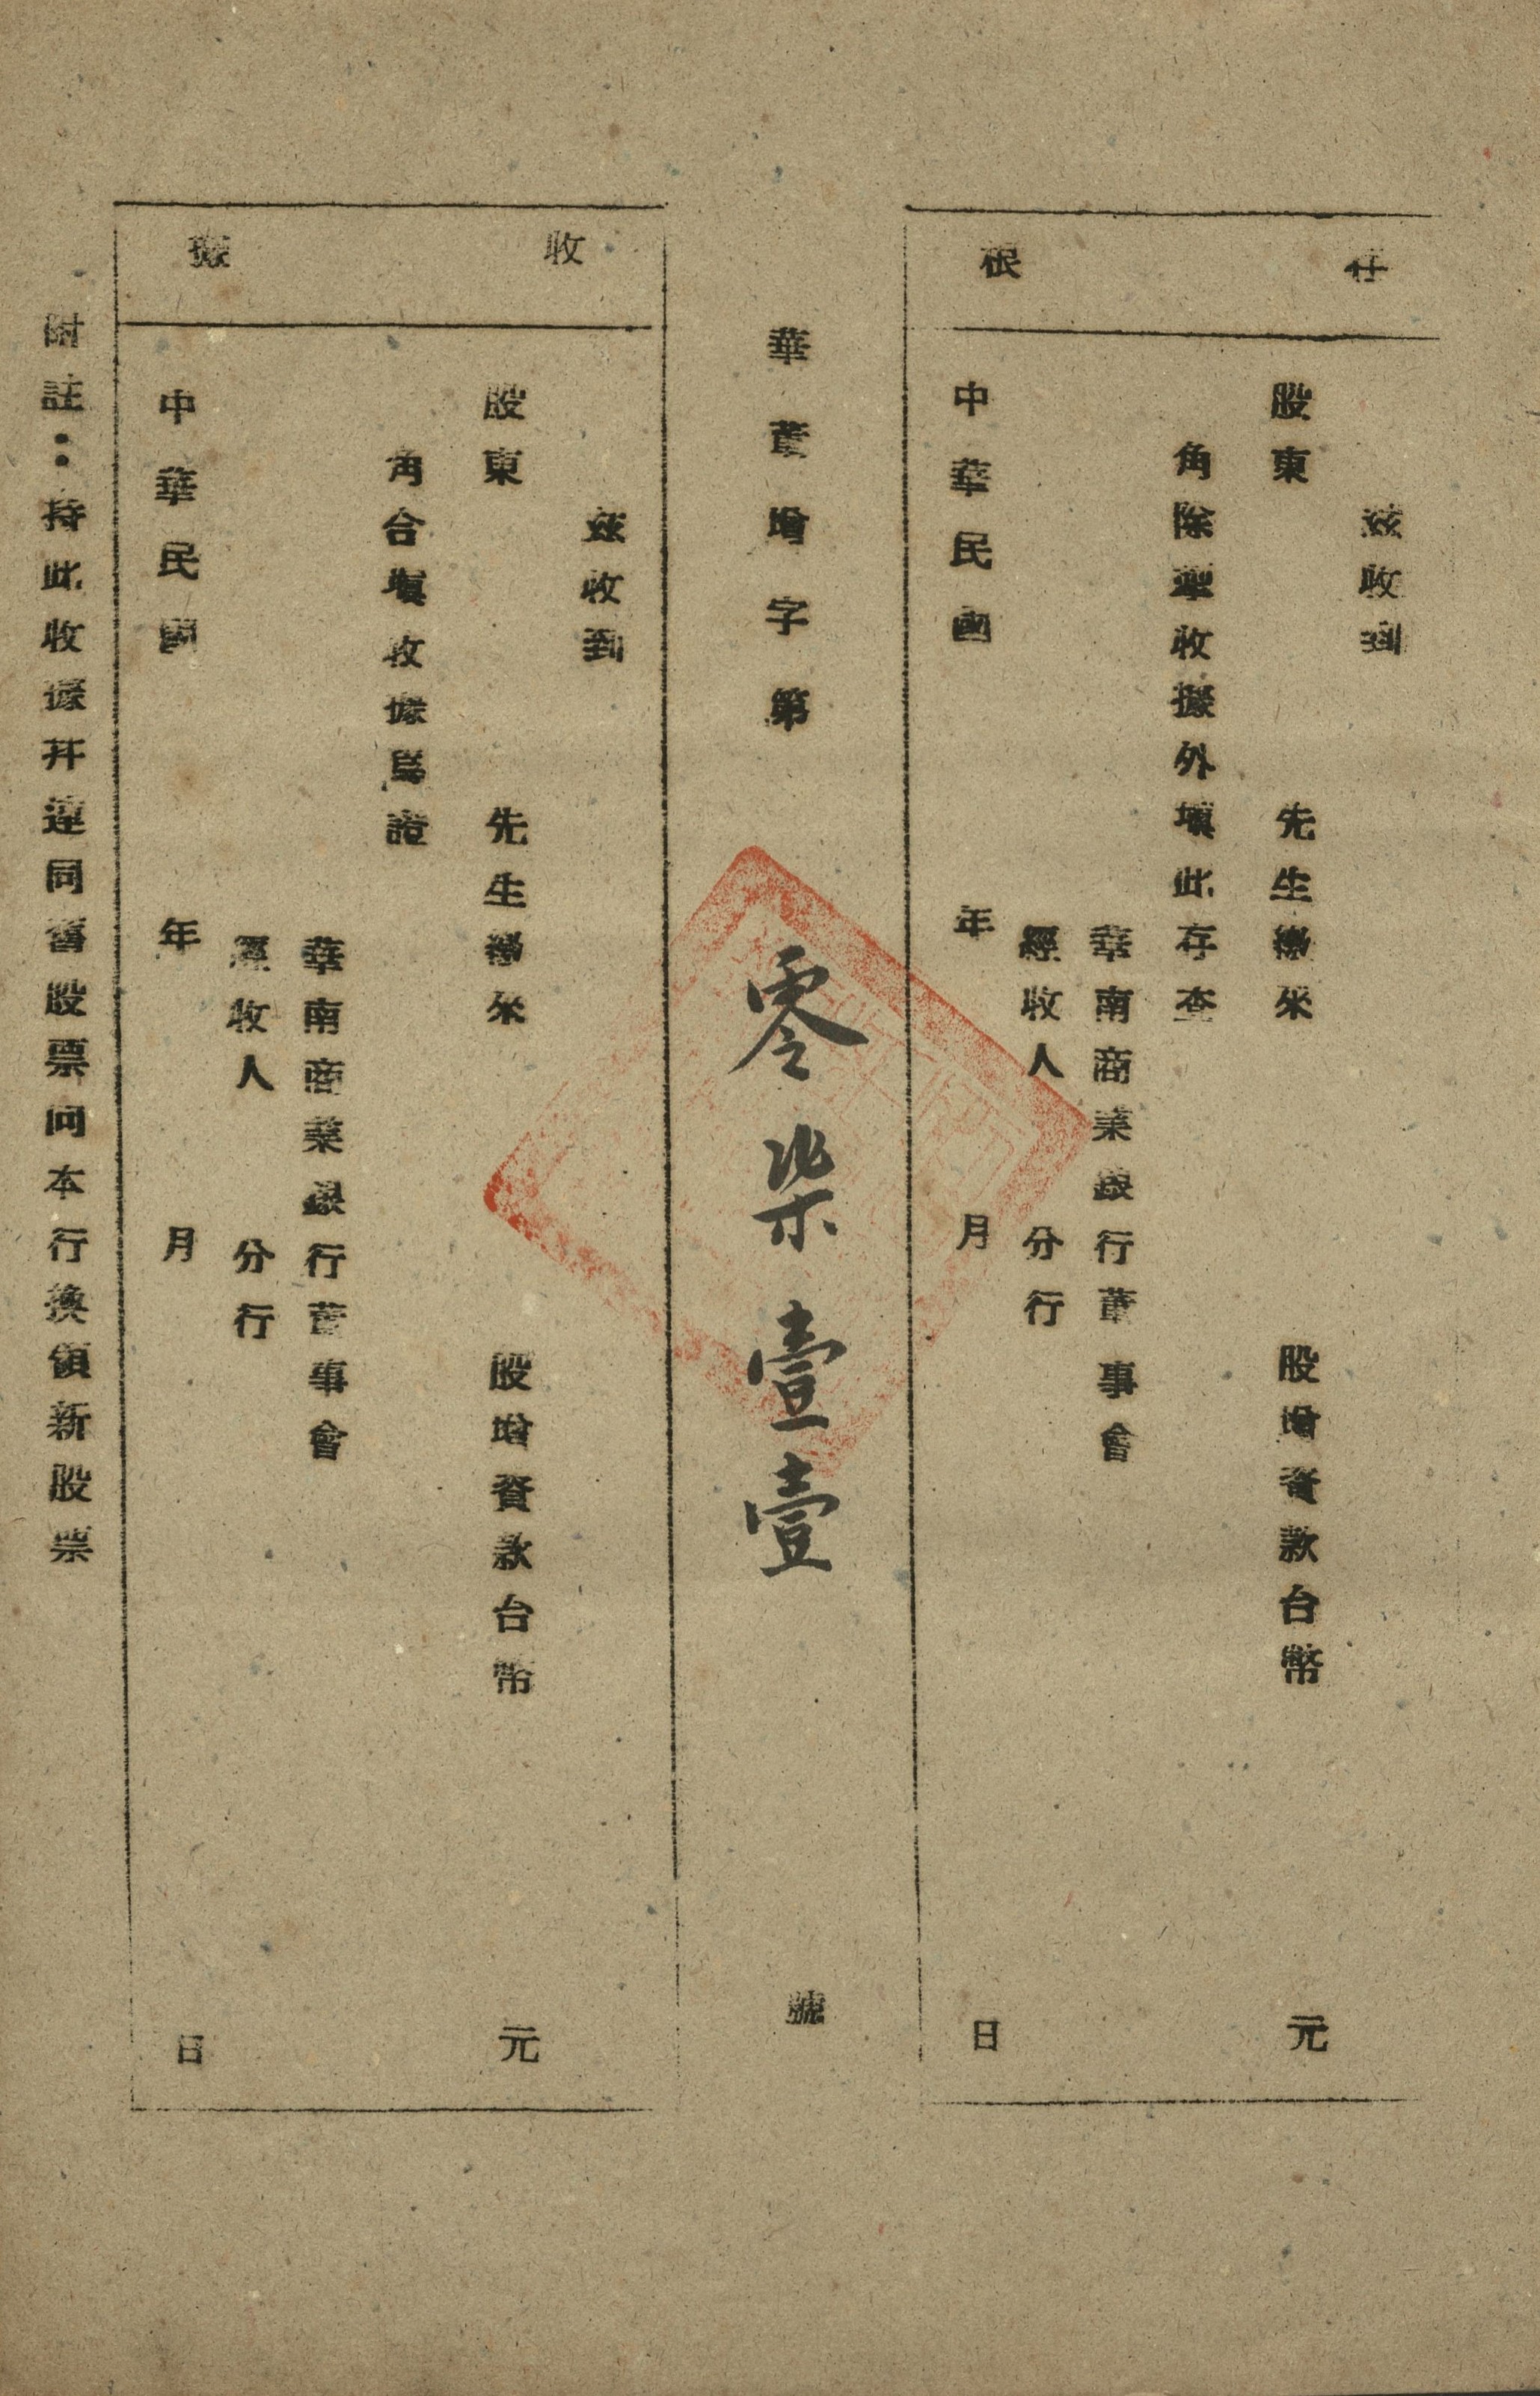 存根
茲收到
股東 先生繳來 股增資款台幣 元
角除掣收據外填此存查
華南商業銀行董事會
經收人 分行
中華民國 年 月 日
華董增字第 零柒壹壹 號
收據
茲收到
股東 先生繳來 股增資款台幣 元
角合填收據爲證
華南商業銀行董事會
經收人 分行
中華民國 年 月 日
附註：持此收據幷連同舊股票向本行換領新股票